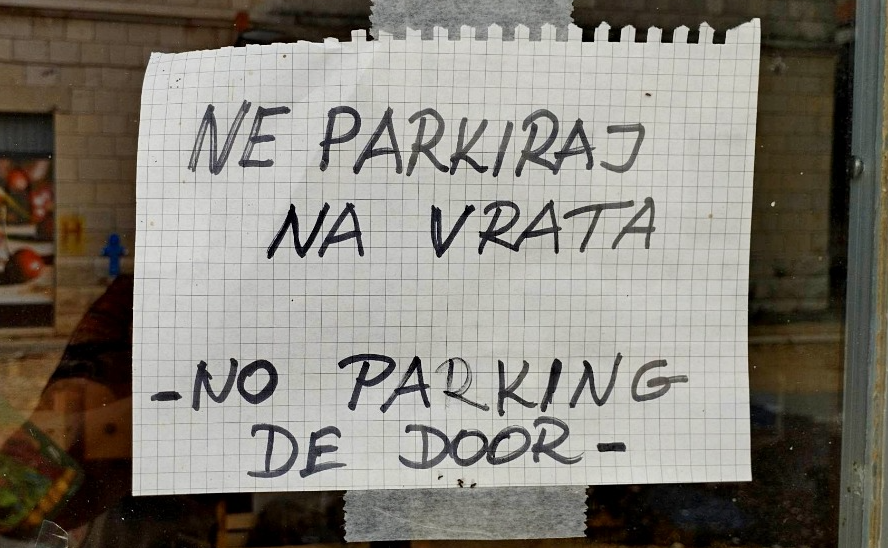 NE PARKIRAJ
NA VRATA
-NO PARKING
DE DOOR-
H